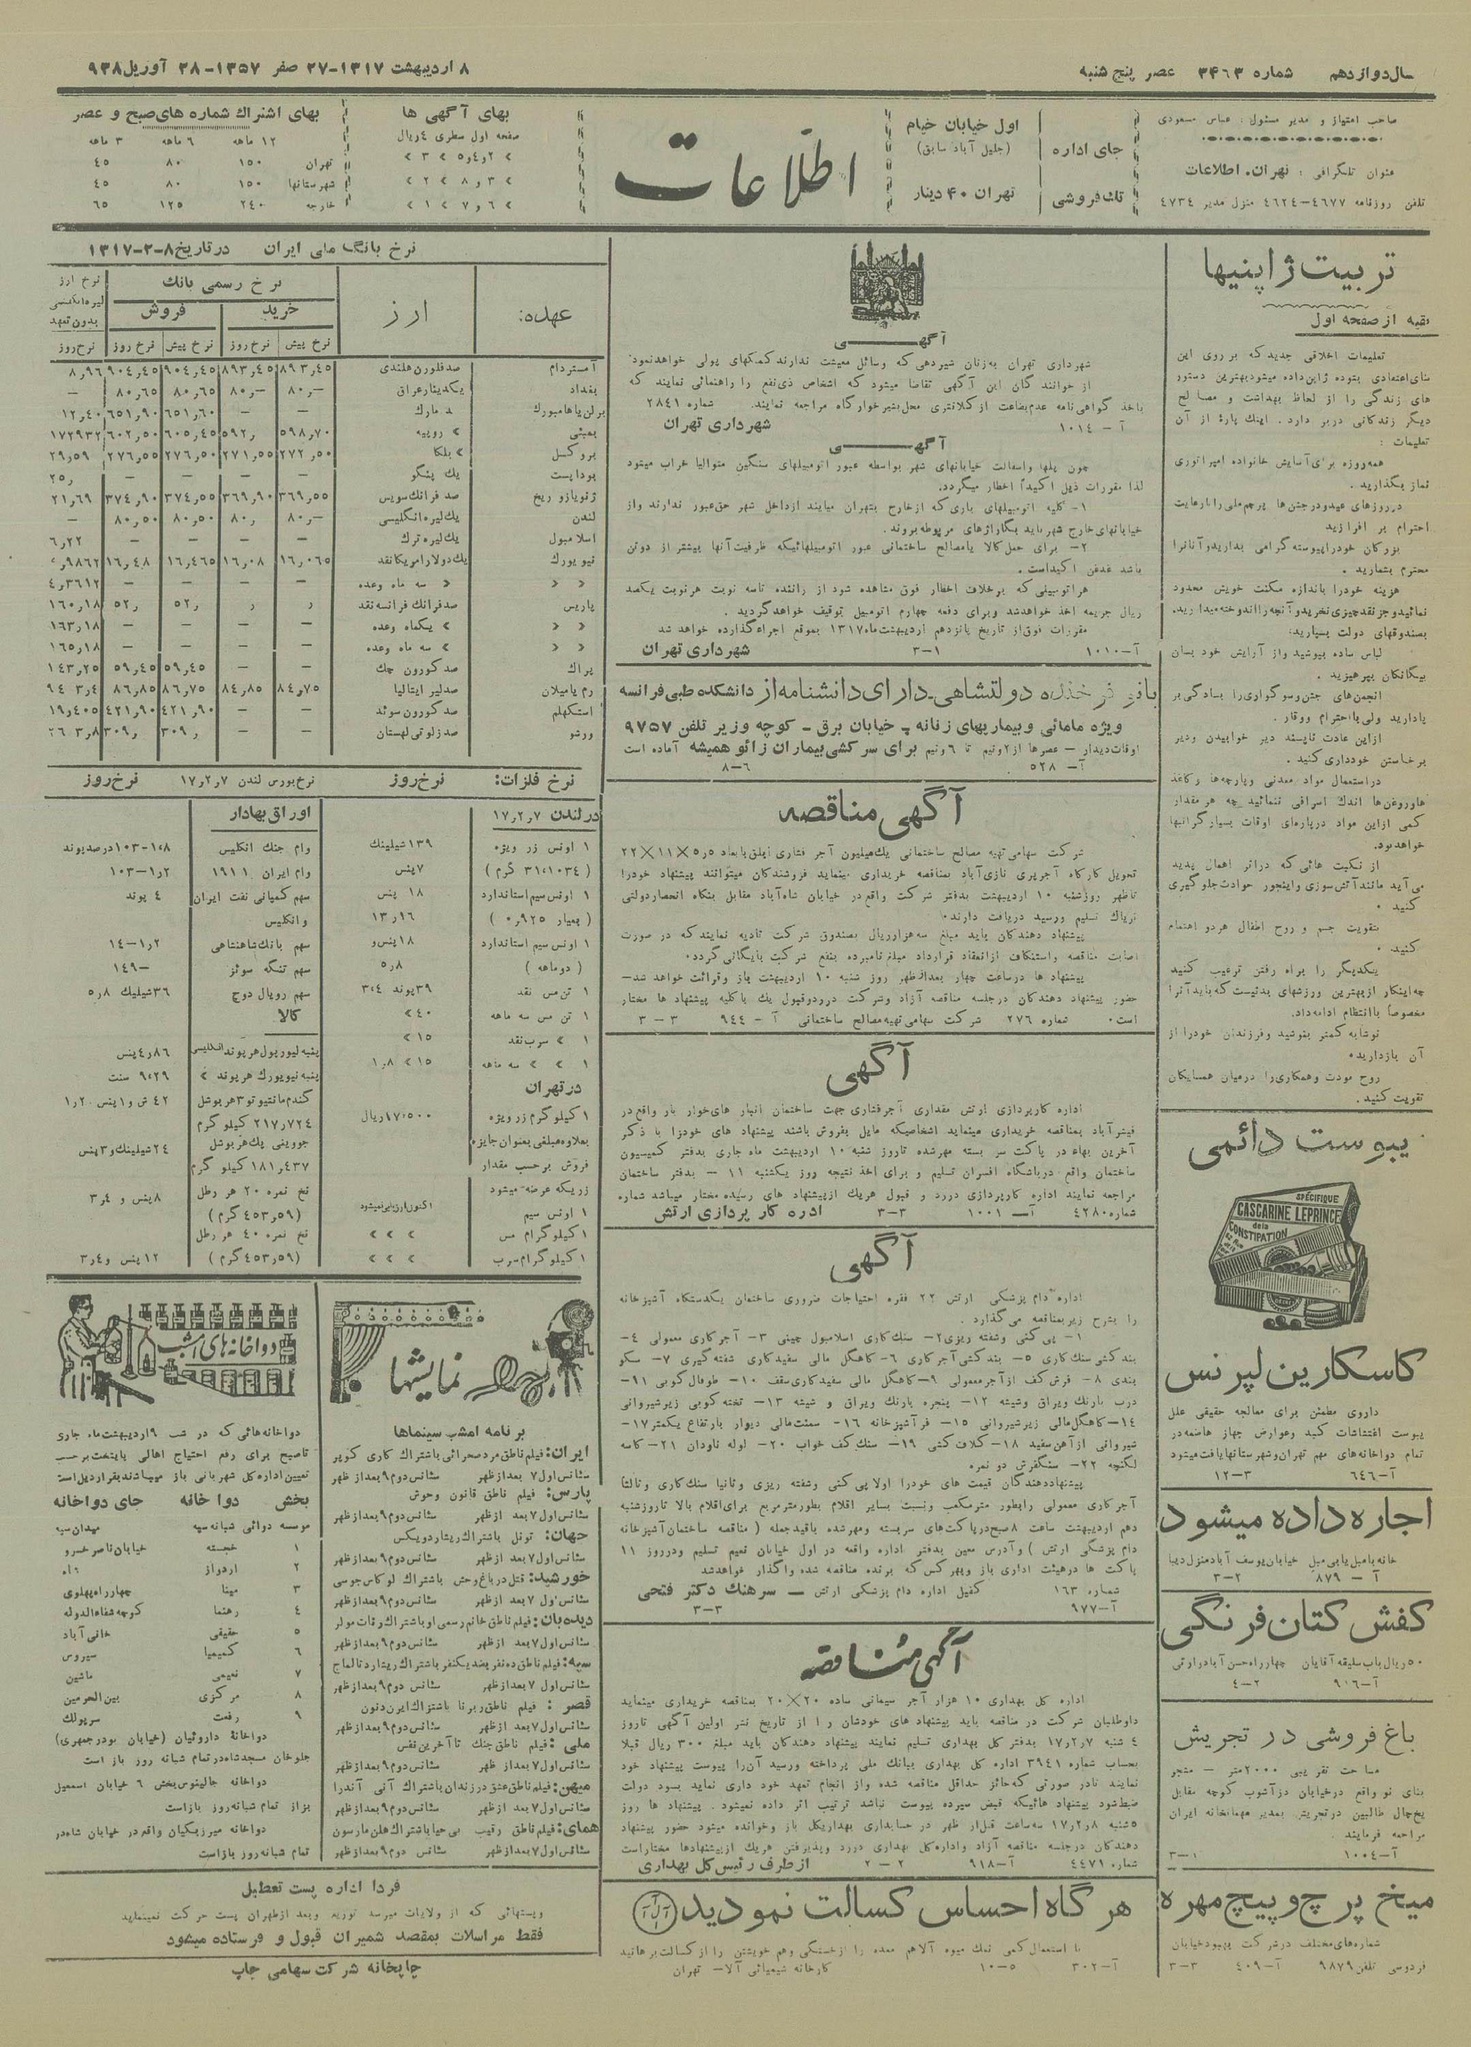 سال دوازدهم شماره ۳۴۶۳ عصر پنج شنبه
۸ اردیبهشت ۱۳۱۷-۲۷ صفر ۱۳۵۷-۲۸ آوریل ۹۳۸
صاحب امتیاز و مدیر مسئول: عباس مسعودی
عنوان تلگرافی: تهران. اطلاعات
تلفن روزنامه ۴۶۷۷-۴۶۲۴ منزل مدیر ۴۷۳۴
جای اداره
اول خیابان خیام
(جلیل آباد سابق)
تکفروشی
تهران ۴۰ دینار
اطلاعات
بهای آگهی ها
صفحه اول سطری ۴ ریال
» ۲ و ۴ و ۵ » ۳ »
» ۳ و ۸ » ۲ »
» ۶ و ۷ » ۱ »
بهای اشتراك شماره های صبح و عصر
۱۲ ماهه ۶ ماهه ۳ ماهه
تهران ۱۵۰ ۸۰ ۴۵
شهرستانها ۱۵۰ ۸۰ ۴۵
خارجه ۲۴۰ ۱۲۵ ۶۵
تربیت ژاپنیها
بقیه از صفحه اول
تعلیمات اخلاقی جدید که بر روی این
بنای اعتمادی بتوده ژاپن داده میشود بهترین دستور
های زندگی را از لحاظ بهداشت و مصالح
دیگر زندگانی دربر دارد. اینك پارهٔ از آن
تعلیمات:
همه روزه برای آسایش خانواده امپراتوری
نماز بگذارید.
در روزهای عید و در جشن ها پرچم ملی را با رعایت
احترام بر افرازید
بزرگان خود را پیوسته گرامی بدارید و آنانرا
محترم بشمارید.
هزینه خود را باندازه مکنت خویش محدود
نمائید و جز نقد چیزی نخرید و آنچه را اندوخته میدارید
بصندوقهای دولت بسپارید.
لباس ساده بپوشید و از آرایش خود بسان
بیگانگان بپرهیزید.
انجمن های جشن و سوگواری را بسادگی بر
پا دارید ولی با احترام و وقار.
از این عادت ناپسند دیر خوابیدن و دیر
برخاستن خودداری کنید.
در استعمال مواد معدنی و پارچه ها و کاغذ
ها و روغن ها اندك اسرافی ننمائید چه هر مقدار
کمی از این مواد در پاره ای اوقات بسیار گرانبها
خواهد بود.
از نکبت هائی که در اثر اهمال پدید
می آید مانند آتش سوزی و اینجور حوادث جلوگیری
کنید.
بتقویت جسم و روح اطفال هر دو اهتمام
کنید.
یکدیگر را براه رفتن ترغیب کنید
چه اینکار از بهترین ورزشهای بدنیست که باید آنرا
مخصوصاً با انتظام ادامه داد.
نوشابه کمتر بنوشید و فرزندان خود را از
آن بازدارید.
روح مودت و همکاری را درمیان همسایگان
تقویت کنید.
یبوست دائمی
SPÉCIFIQUE
CASCARINE LEPRINCE
de la
CONSTIPATION
کاسکارین لپرنس
داروی مطمئن برای معالجه حقیقی علل
یبوست اغتشاشات کبد و عوارض جهاز هاضمه در
تمام دواخانه های مهم تهران و شهرستانها یافت میشود
آ-۶۴۶ ۳-۱۲
اجاره داده میشود
خانه با مبل یا بی مبل خیابان یوسف آباد منزل دیبا
آ - ۸۷۹ ۲-۳
کفش کتان فرنگی
۵۰ ریال باب سلیقه آقایان چهارراه حسن آباد
آ-۹۱۶ ۲-۴
باغ فروشی در تجریش
مساحت تقریبی ۲۰۰۰ متر - مشجر
بنای نو واقع در خیابان دزآشوب کوچه مقابل
یخچال طالبین در تجریش بمدیر مهمانخانه ایران
مراجعه فرمایند.
آ-۱۰۰۴ ۱-۳
میخ پرچ و پیچ مهره
شماره های مختلف در شرکت بهبود خیابان
فردوسی تلفن ۹۸۷۹ آ-۴۰۹ ۳-۳
آگهی
شهرداری تهران به زنان شیردهی که وسائل معیشت ندارند کمکهای پولی خواهد نمود
از خوانندگان این آگهی تقاضا میشود که اشخاص ذی نفع را راهنمائی نمایند که
باخذ گواهی نامه عدم بضاعت از کلانتری محل بشیرخوارگاه مراجعه نمایند. شماره ۲۸۴۱
آ - ۱۰۱۴ شهرداری تهران
آگهی
چون پلها و اسفالت خیابانهای شهر بواسطه عبور اتومبیلهای سنگین متوالیا خراب میشود
لذا مقررات ذیل اکیداً اخطار میگردد.
۱- کلیه اتومبیلهای باری که از خارج بتهران میایند از داخل شهر حق عبور ندارند و از
خیابانهای خارج شهر باید بگاراژهای مربوطه بروند.
۲- برای حمل کالا یا مصالح ساختمانی عبور اتومبیلهائیکه ظرفیت آنها بیشتر از دوتن
باشد غدغن اکید است.
هر اتومبیلی که برخلاف اخطار فوق مشاهده شود از راننده تا سه نوبت هر نوبت یکصد
ریال جریمه اخذ خواهد شد و برای دفعه چهارم اتومبیل توقیف خواهد گردید.
مقررات فوق از تاریخ پانزدهم اردیبهشت ماه ۱۳۱۷ بموقع اجراء گذارده خواهد شد
آ-۱۰۱۰ ۱-۳ شهرداری تهران
بانو فرخنده دولتشاهی-دارای دانشنامه از دانشکده طبی فرانسه
ویژه مامائی و بیماریهای زنانه - خیابان برق - کوچه وزیر تلفن ۹۷۵۷
اوقات دیدار - عصرها از ۲ و نیم تا ۶ و نیم برای سرکشی بیماران زائو همیشه آماده است
آ- ۵۲۸ ۶-۸
آگهی مناقصه
شرکت سهامی تهیه مصالح ساختمانی یك میلیون آجر فشاری ابلق بابعاد ۵ر۵×۱۱×۲۲
تحویل کارگاه آجرپزی نازی آباد بمناقصه خریداری مینماید فروشندگان میتوانند پیشنهاد خود را
تا ظهر روز شنبه ۱۰ اردیبهشت بدفتر شرکت واقع در خیابان شاه آباد مقابل بنگاه انحصار دولتی
تریاك تسلیم و رسید دریافت دارند.
پیشنهاد دهندگان باید مبلغ سه هزار ریال بصندوق شرکت تادیه نمایند که در صورت
اصابت مناقصه و استنکاف از انعقاد قرارداد مبلغ نامبرده بنفع شرکت بایگانی گردد.
پیشنهاد ها در ساعت چهار بعد از ظهر روز شنبه ۱۰ اردیبهشت باز و قرائت خواهد شد-
حضور پیشنهاد دهندگان در جلسه مناقصه آزاد و شرکت در رد و قبول یك یا کلیه پیشنهاد ها مختار
است. شماره ۲۷۶ شرکت سهامی تهیه مصالح ساختمانی آ - ۹۴۴ ۳ - ۳
آگهی
اداره کارپردازی ارتش مقداری آجر فشاری جهت ساختمان انبار های خوار بار واقع در
قیشر آباد بمناقصه خریداری مینماید اشخاصیکه مایل بفروش باشند پیشنهاد های خود را با ذکر
آخرین بهاء در پاکت سر بسته مهر شده تا روز شنبه ۱۰ اردیبهشت ماه جاری بدفتر کمیسیون
ساختمان واقع در باشگاه افسران تسلیم و برای اخذ نتیجه روز یکشنبه ۱۱ - بدفتر ساختمان
مراجعه نمایند اداره کارپردازی در رد و قبول هر یك از پیشنهاد های رسیده مختار میباشد شماره
شماره ۴۲۸۰ آ - ۱۰۰۱ ۳-۳ اداره کار پردازی ارتش
آگهی
اداره دام پزشکی ارتش ۲۲ فقره احتیاجات ضروری ساختمان یکدستگاه آشپزخانه
را بشرح زیر بمناقصه می گذارد.
۱- پی کنی و شفته ریزی ۲- سنك کاری اسلامبول چینی ۳- آجر کاری معمولی ۴-
بند کشی سنك کاری ۵- بند کشی آجر کاری ۶- کاهگل مالی سفید کاری شفته گیری ۷- سکو
بندی ۸- فرش کف از آجر معمولی ۹- کاهگل مالی سفید کاری سقف ۱۰- طوفال کوبی ۱۱-
درب با رنك ویراق و شیشه ۱۲- پنجره با رنك ویراق و شیشه ۱۳- تخته کوبی زیر شیروانی
۱۴- کاهگل مالی زیر شیروانی ۱۵- فر آشپزخانه ۱۶- سمنت مالی دیوار بارتفاع یکمتر ۱۷-
شیروانی از آهن سفید ۱۸- کلاف کشی ۱۹- سنك کف خواب ۲۰- لوله ناودان ۲۱- کاسه
لگنچه ۲۲- سنگفرش دو نمره.
پیشنهاد دهندگان قیمت های خود را اولا پی کنی و شفته ریزی و ثانیا سنك کاری و ثالثاً
آجر کاری معمولی را بطور متر مکعب و نسبت بسایر اقلام بطور متر مربع برای اقلام بالا تا روز شنبه
دهم اردیبهشت ساعت ۸ صبح در پاکت های سربسته و مهر شده با قید جمله (مناقصه ساختمان آشپزخانه
دام پزشکی ارتش) و آدرس معین بدفتر اداره واقعه در اول خیابان نعیم تسلیم و در روز ۱۱
پاکت ها در هیئت اداری باز و بهر کس که برنده مناقصه شده واگذار خواهد شد
شماره ۱۶۳ کفیل اداره دام پزشکی ارتش - سرهنك دکتر فتحی
آ-۹۷۷ ۳-۳
آگهی مناقصه
اداره کل بهداری ۱۰ هزار آجر سیمانی ساده ۲۰×۲۰ بمناقصه خریداری مینماید
داوطلبان شرکت در مناقصه باید پیشنهاد های خودشان را از تاریخ نشر اولین آگهی تا روز
۴ شنبه ۱۷ر۲ر۷ بدفتر کل بهداری تسلیم نمایند پیشنهاد دهندگان باید مبلغ ۳۰۰ ریال قبلا
بحساب شماره ۳۹۴۱ اداره کل بهداری ببانك ملی پرداخته و رسید آن را پیوست پیشنهاد خود
نمایند تا در صورتی که حائز حداقل مناقصه شده و از انجام تعهد خود داری نماید بسود دولت
ضبط شود پیشنهاد هائیکه قبض سپرده پیوست نباشد ترتیب اثر داده نمیشود. پیشنهاد ها روز
۵ شنبه ۱۷ر۲ر۸ سه ساعت قبل از ظهر در حسابداری بهداری کل باز و خوانده میشود حضور پیشنهاد
دهندگان در جلسه مناقصه آزاد و اداره کل بهداری در رد و پذیرفتن هر یك از پیشنهادها مختار است
شماره ۴۴۷۱ آ-۹۱۸ ۲-۲ از طرف رئیس کل بهداری
هرگاه احساس کسالت نمودید
با استعمال کمی نمك میوه آلا هم معده را از خستگی و هم خویشتن را از کسالت برهانید
آ-۳۰۲ ۵-۱۰ کارخانه شیمیائی آلا- تهران
نرخ بانگ ملی ایران در تاریخ ۸-۲-۱۳۱۷
عهده: ارز نرخ رسمی بانك نرخ ارز لیره انگلیسی بدون تعهد
خرید فروش
نرخ پیش نرخ روز نرخ پیش نرخ روز نرخ روز
آمستردام صد فلورن هلندی ۸۹۳ر۴۵ ۸۹۳ر۴۵ ۹۰۴ر۴۵ ۹۰۴ر۴۵ ۸ر۹۶
بغداد یکدینار عراق ۸۰ر- ۸۰ر- ۸۰ر۶۵ ۸۰ر۶۵ -
برلن یا هامبورك صد مارك - - ۶۵۱ر۶۰ ۶۵۱ر۹۰ ۱۲ر۴۰
بمبئی » روپیه ۵۹۸ر۷۰ ۵۹۲ر ۶۰۵ر۴۵ ۶۰۲ر۵۰ ۱۷۲۹۳۲
بروکسل » بلکا ۲۷۲ر۵۰ ۲۷۱ر۵۵ ۲۷۶ر۵۰ ۲۷۶ر۵۵ ۲۹ر۵۹
بوداپست یك پنگو - - - - ۲۵ر
ژنو یا زوریخ صد فرانك سویس ۳۶۹ر۵۵ ۳۶۹ر۹۰ ۳۷۴ر۵۵ ۳۷۴ر۹۰ ۲۱ر۶۹
لندن یك لیره انگلیسی ۸۰ر- ۸۰ر ۸۰ر۵۰ ۸۰ر۵۰ -
اسلامبول یك لیره ترك ۶ر۲۲
نیویورك یك دولار امریکا نقد ۱۶ر۰۶۵ ۱۶ر۰۸ ۱۶ر۴۶۵ ۱۶ر۴۸
» » سه ماه وعده - - - - ۴ر۳۶۱۲
پاریس صد فرانك فرانسه نقد ر ر ۵۲ر ۵۲ر ۱۶۰ر۱۸
» » یکماه وعده - - - - ۱۶۳ر۱۸
» » سه ماه وعده - - - - ۱۶۵ر۱۸
پراك صد کورون چك - - ۵۹ر۴۵ ۵۹ر۴۵ ۱۴۳ر۲۵
رم یا میلان صد لیر ایتالیا ۸۴ر۷۵ ۸۴ر۸۵ ۸۶ر۷۵ ۸۶ر۸۵ ۹۴ ۳ر۴
استکهلم صد کورون سوئد - - ۴۲۱ر۹۰ ۴۲۱ر۹۰ ۱۹ر۴۰۵
ورشو صد زلوتی لهستان - - ۳۰۹ر ۳۰۹ر ۲۶ ۳ر۸
نرخ فلزات: نرخ روز
در لندن ۱۷ر۲ر۷
۱ اونس زر ویژه ۱۳۹ شیلینك
(۳۱٫۱۰۳۴ گرم) ۷ پنس
۱ اونس سیم استاندارد ۱۸ پنس
(بعیار ۰ر۹۲۵) ۱۳ر۱۶
۱ اونس سیم استاندارد ۱۸ پنس و
(دوماهه) ۵ر۸
۱ تن مس نقد ۳۹ پوند ۳ر۴
۱ تن مس سه ماهه ۴۰ »
۱ » سرب نقد ۱۵ »
۱ » » سه ماهه ۱۵ » ۱ر۸
در تهران
۱ کیلو گرم زر ویژه ۱۷۰۵۰۰ ریال
بعلاوه مبلغی بعنوان جایزه
فروش بر حسب مقدار
زریکه عرضه میشود
۱ اونس سیم اکنون ارزیابی نمیشود
۱ کیلوگرام مس » » »
۱ کیلوگرام سرب » » »
نرخ بورس لندن ۱۷ر۲ر۷ نرخ روز
اوراق بهادار
وام جنك انگلیس ۱ر۸-۱۰۳ درصد پوند
وام ایران ۱۹۱۱ ۱ر۲-۱۰۳
سهم کمپانی نفت ایران ۴ پوند
و انگلیس
سهم بانك شاهنشاهی ۱ر۲-۱۴
سهم تنگه سوئز ۱۴۹-
سهم رویال دوچ ۳۶ شیلیك ۵ر۸
کالا
پنبه لیورپول هر پوند انگلیسی ۴ر۸۶ پنس
پنبه نیویورك هر پوند » ۹٫۲۹ سنت
گندم مانتیوتو ۳ هر بوشل ۴۲ ش و ۱ پنس ۱ر۲
۲۱۷ر۷۲۴ کیلو گرم
جو وینی پك هر بوشل ۲۴ شیلینك و ۳ پنس
۱۸۱ر۴۳۷ کیلو گرم
نخ نمره ۲۰ هر رطل ۸ پنس و ۳ر۴
(۴۵۳ر۵۹ گرم)
نخ نمره ۴۰ هر رطل
(۴۵۳ر۵۹ گرم) ۱۲ پنس و ۳ر۴
نمایشها
برنامه امشب سینماها
ایران: فیلم ناطق مرد صحرائی باشتراك کاری کوپر
سئانس اول ۷ بعد از ظهر سئانس دوم ۹ بعد از ظهر
پارس: فیلم ناطق قانون وحوش
سئانس اول ۷ بعد از ظهر سئانس دوم ۹ بعد از ظهر
جهان: تونل باشتراك ریشارد ویکس
سئانس اول ۷ بعد از ظهر سئانس دوم ۹ بعد از ظهر
خورشید: قتل در باغ وحش باشتراك لوکاس جوسی
سئانس اول ۷ بعد از ظهر سئانس دوم ۹ بعد از ظهر
دیده بان: فیلم ناطق خانم رسمی او باشتراك رنات مولر
سئانس اول ۷ بعد از ظهر سئانس دوم ۹ بعد از ظهر
سپه: فیلم ناطق ده نفر بضد یکنفر باشتراك ریشارد تالماج
سئانس اول ۷ بعد از ظهر سئانس دوم ۹ بعد از ظهر
قصر: فیلم ناطق ربرتا باشتراك ایرن دنون
سئانس اول ۷ بعد از ظهر سئانس دوم ۹ بعد از ظهر
ملی: فیلم ناطق جنك تا آخرین نفس
سئانس اول ۷ بعد از ظهر سئانس دوم ۹ بعد از ظهر
میهن: فیلم ناطق عشق در زندان باشتراك آنی آندرا
سئانس اول ۷ بعد از ظهر سئانس دوم ۹ بعد از ظهر
همای: فیلم ناطق رقیب بی حیا باشتراك هلن مارسون
سئانس اول ۷ بعد از ظهر سئانس دوم ۹ بعد از ظهر
دواخانه های امشب
دواخانه هائی که در شب ۹ اردیبهشت ماه جاری
تا صبح برای رفع احتیاج اهالی پایتخت بر حسب
تعیین اداره کل شهربانی باز میباشند بقرار ذیل است
بخش دوا خانه جای دواخانه
موسسه دوائی شبانه سپه میدان سپه
۱ خجسته خیابان ناصر خسرو
۲ اردواز
۳ مینا چهارراه پهلوی
۴ رهنما کوچه شفاءالدوله
۵ حقیقی خانی آباد
۶ کمیمیا سیروس
۷ نعیمی ماشین
۸ مرکزی بین الحرمین
۹ رفعت سرپولك
دواخانهٔ داروئیان (خیابان بوذرجمهری)
جلوخان مسجد شاه در تمام شبانه روز باز است
دواخانه جالینوس بخش ۶ خیابان اسمعیل
بزاز تمام شبانه روز باز است
دواخانه میرزیکیان واقع در خیابان شاه در
تمام شبانه روز باز است
فردا اداره پست تعطیل
وپستهائی که از ولایات میرسد توزیع وبعد از طهران پست حرکت نمینماید
فقط مراسلات بمقصد شمیران قبول و فرستاده میشود
چاپخانه شرکت سهامی چاپ